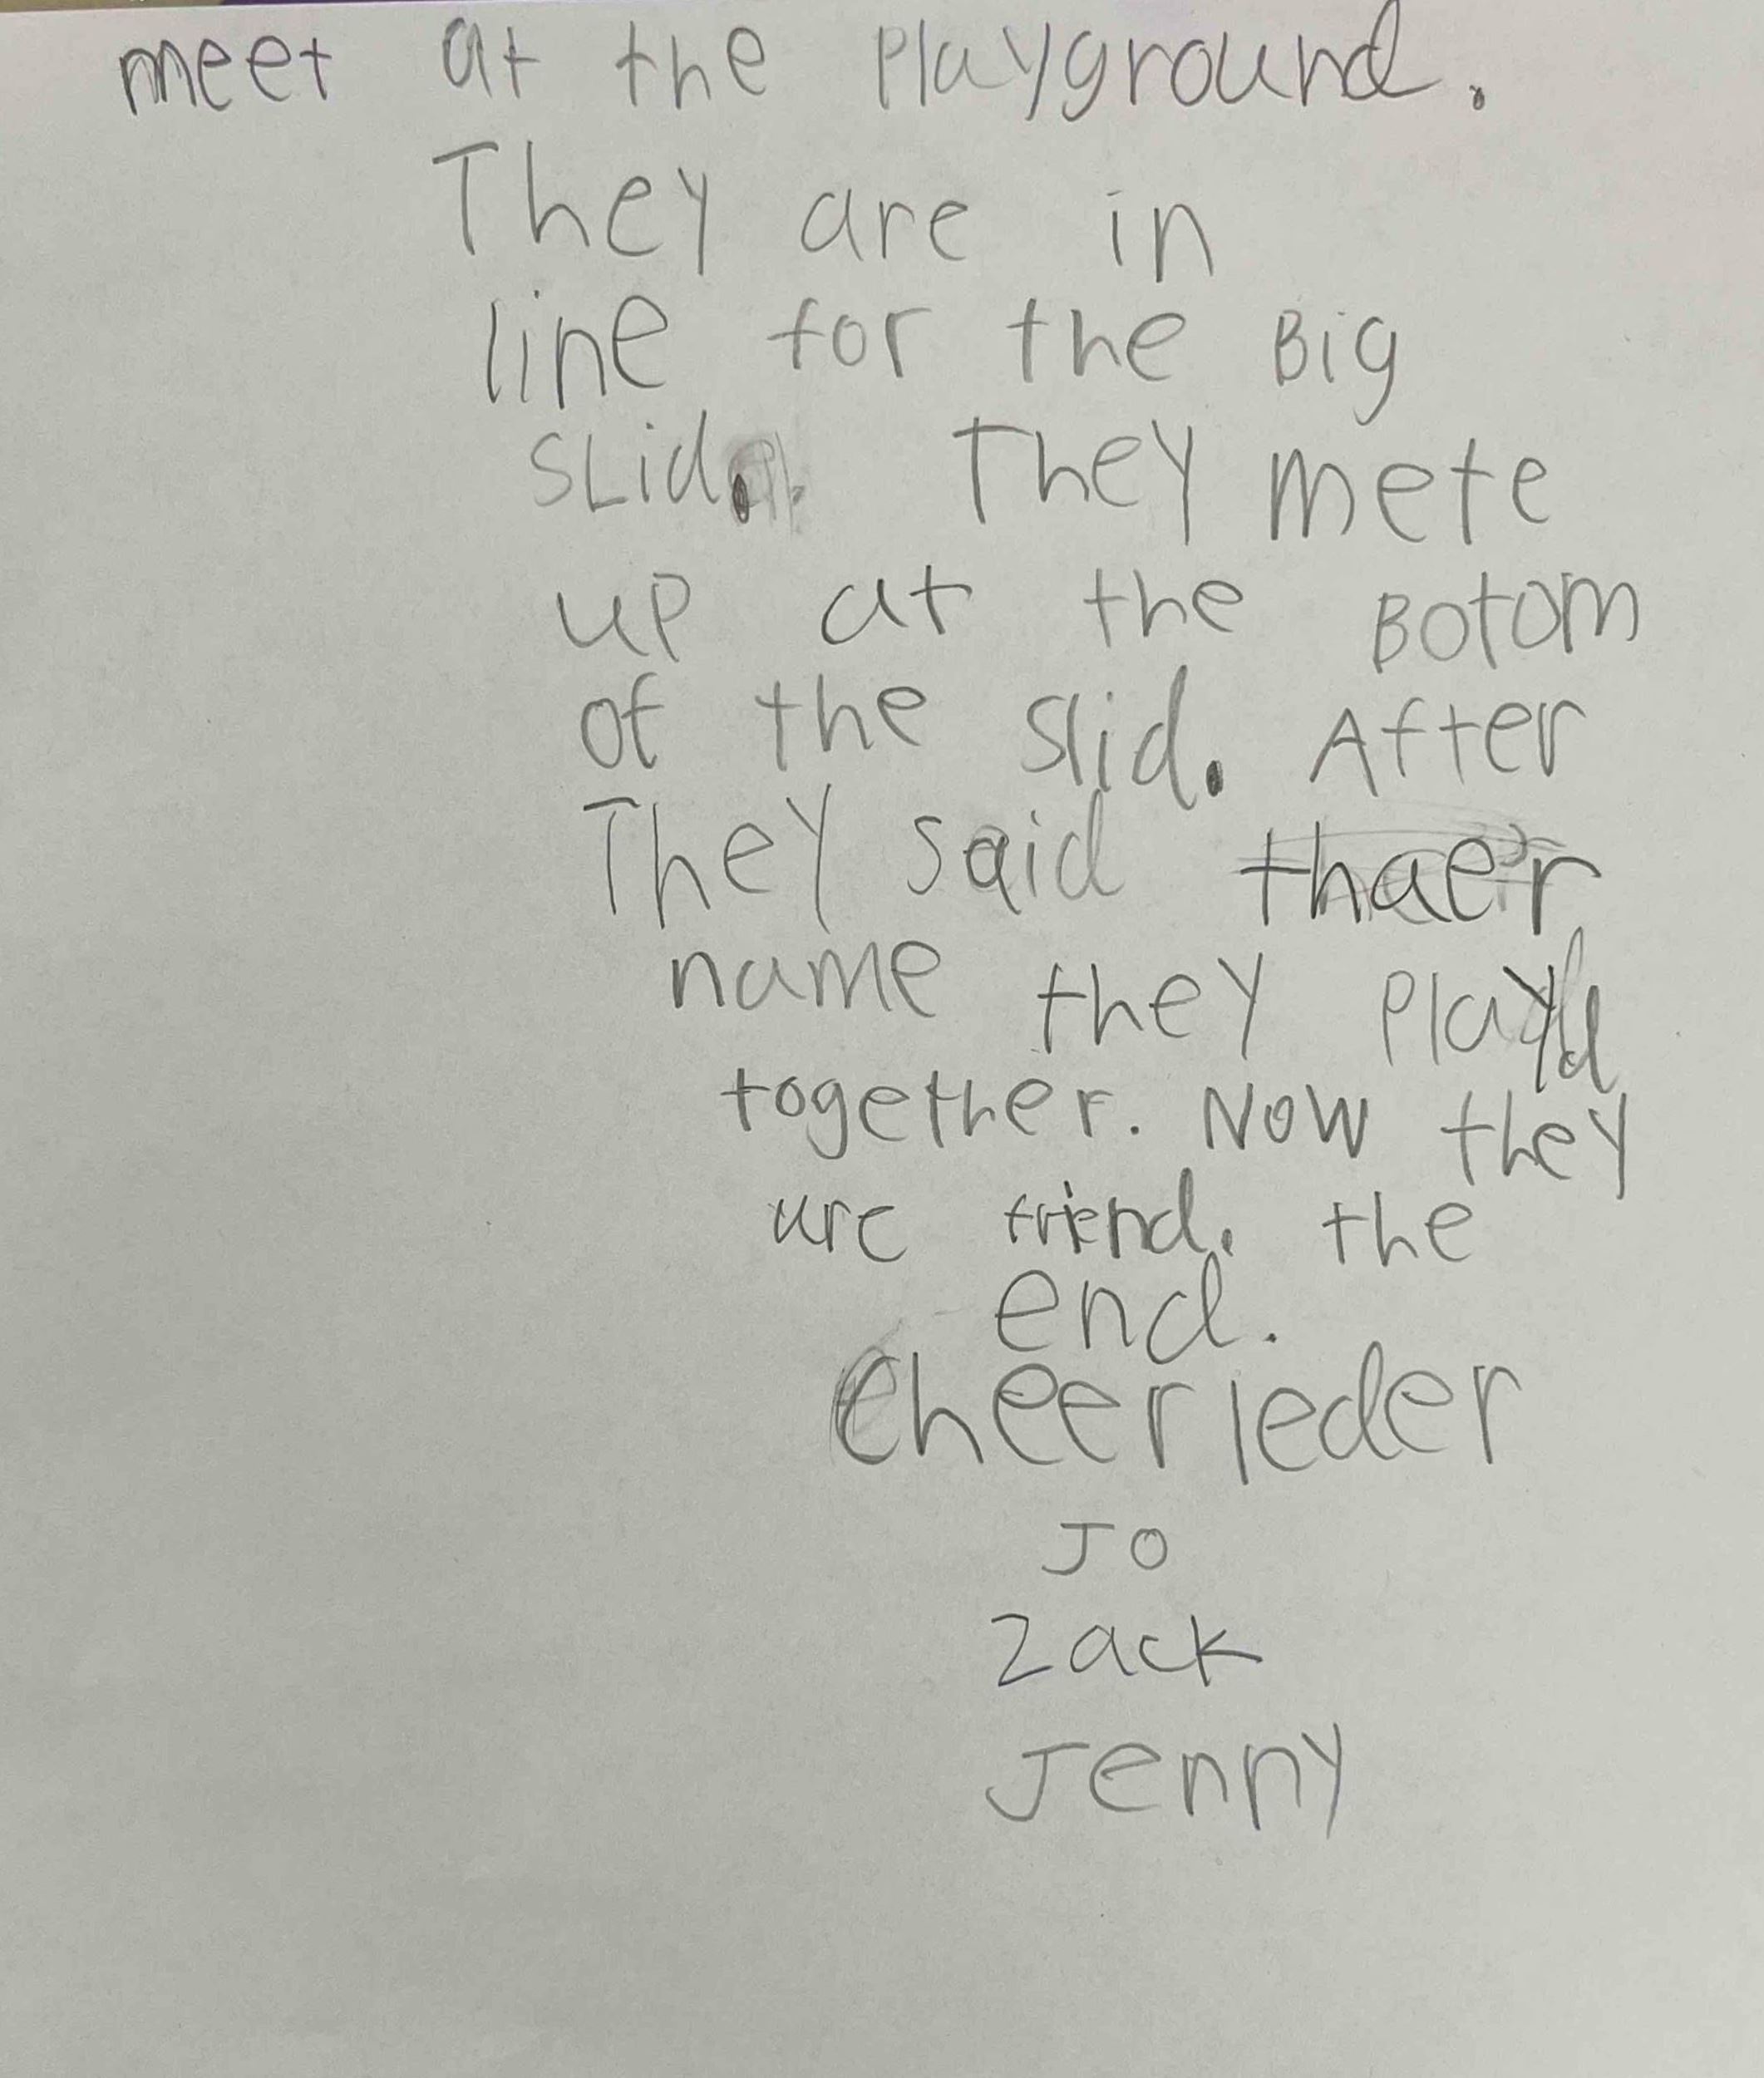 meet at the Playground.
They are in
line for the Big
SLid. They mete
up at the Botom
of the slid. After
They said thaer
name they Playd
together. Now they
are friend. the
end.
Cheerleder
Jo
Zack
Jenny